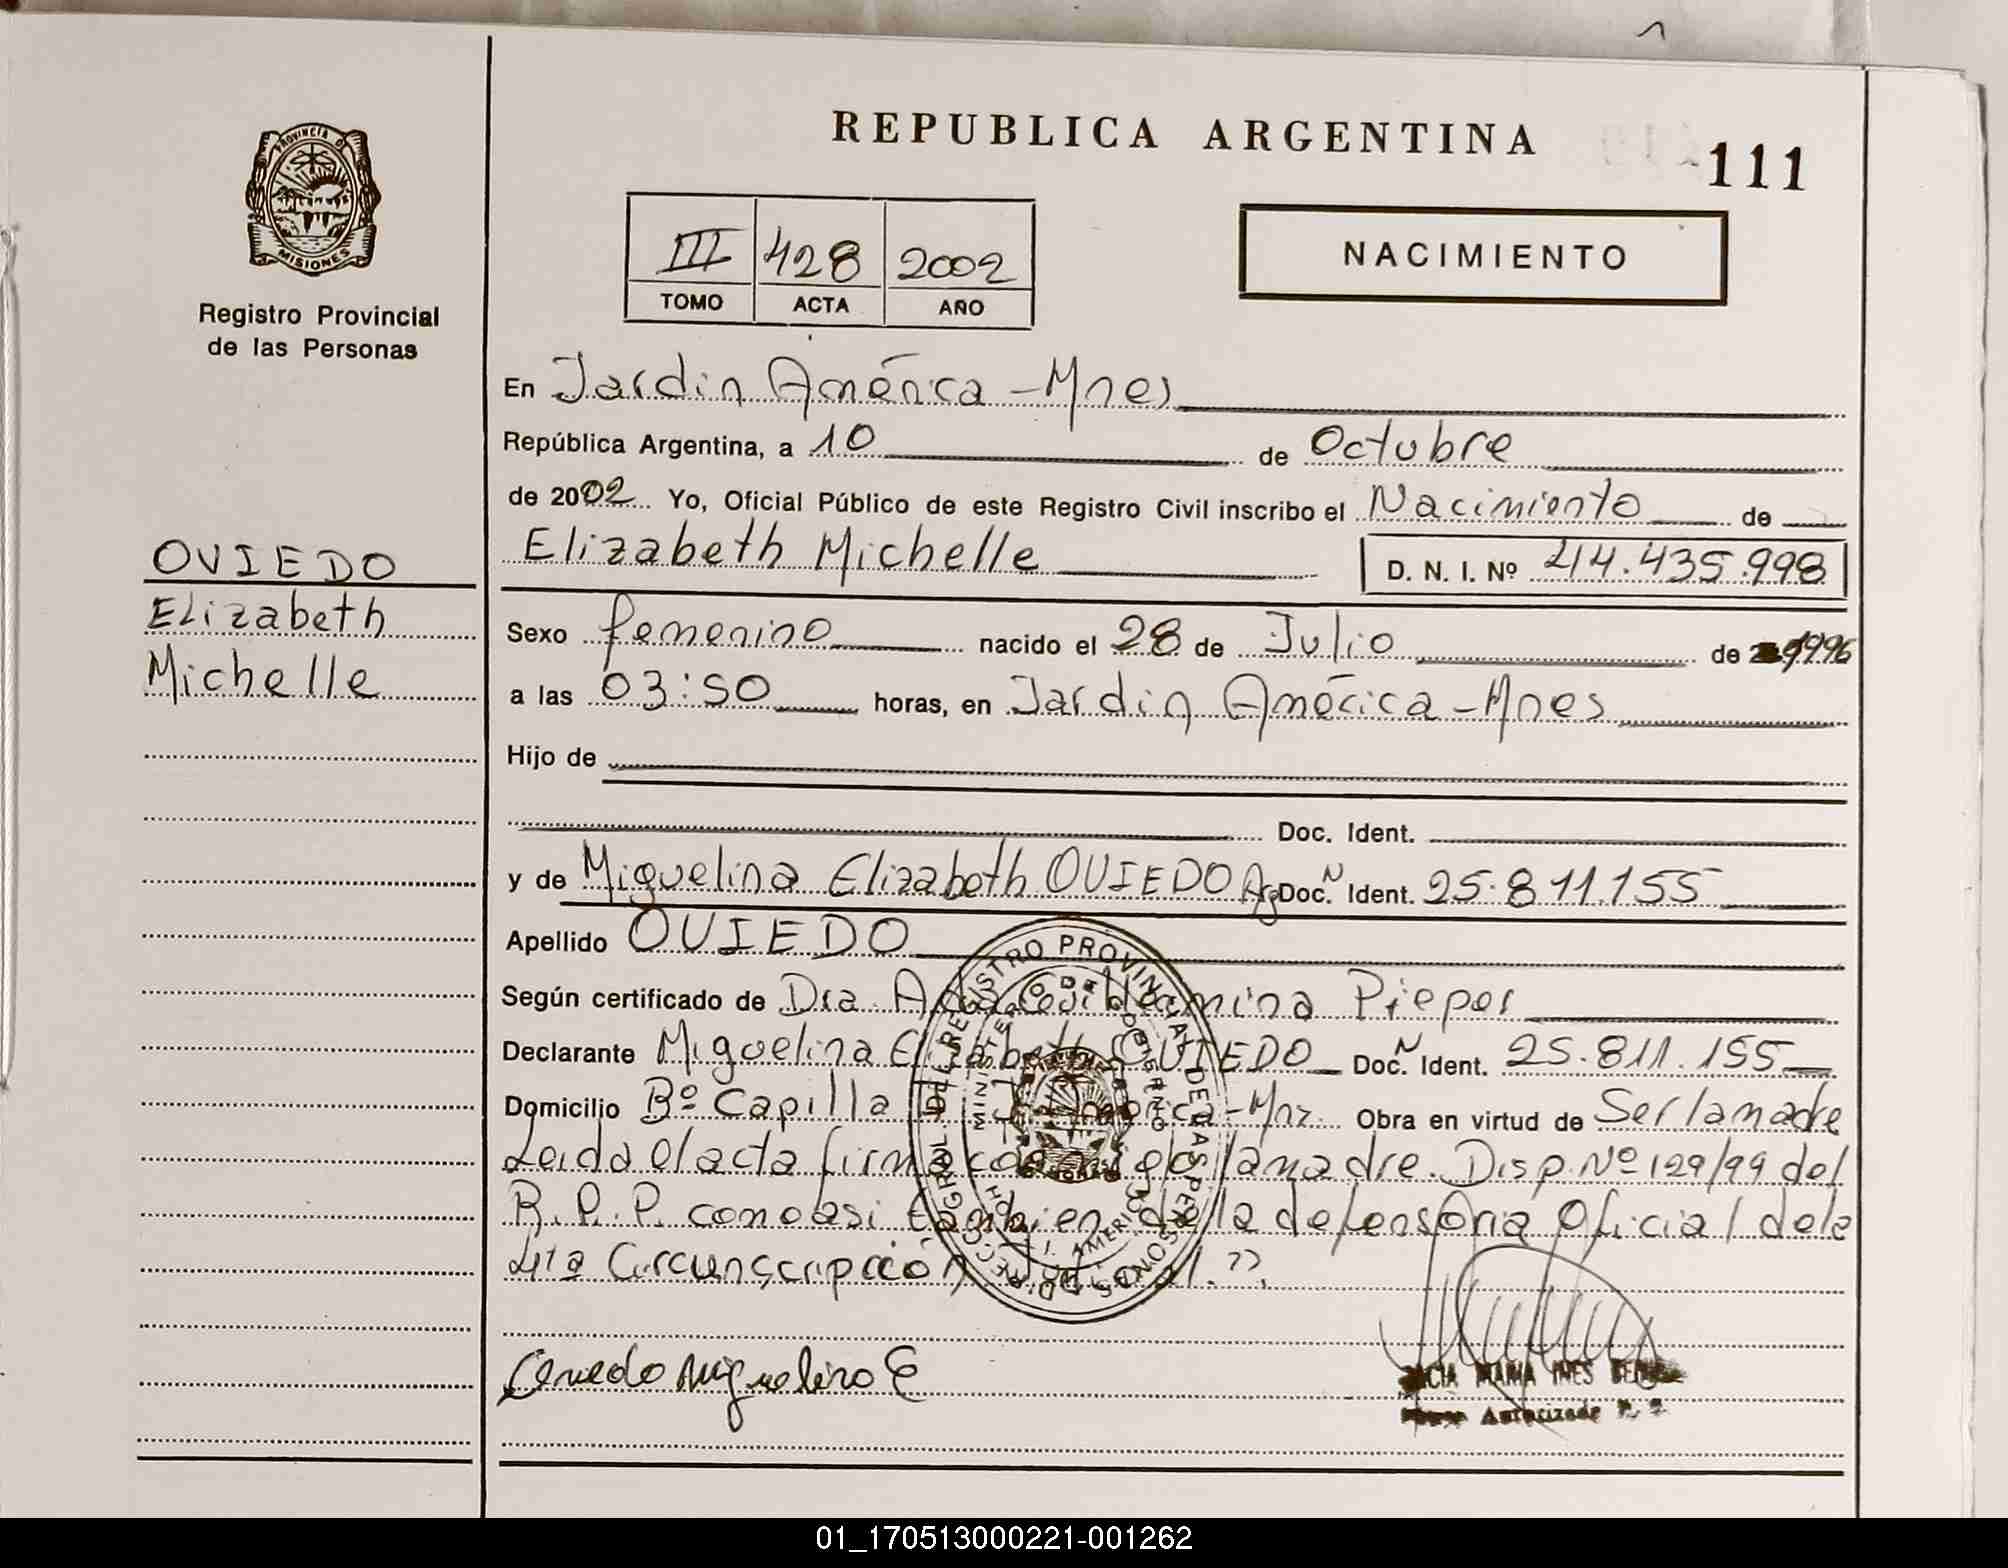 REPUBLICA ARGENTINA
111
PROVINCIA DE
MISIONES
Registro Provincial
de las Personas
III 428 2002
TOMO ACTA AÑO
NACIMIENTO
En Jardin América - Mnes
República Argentina, a 10 de Octubre
de 2002 Yo, Oficial Público de este Registro Civil inscribo el Nacimiento de
Elizabeth Michelle D. N. I. Nº 44.435.998
OVIEDO
Elizabeth
Michelle
Sexo femenino nacido el 28 de Julio de 1996
a las 03:50 horas, en Jardin América - Mnes
Hijo de
Doc. Ident.
y de Miguelina Elizabeth OVIEDO Arg Doc. N Ident. 25.811.155
Apellido OVIEDO
Según certificado de Dra. Pieper
Declarante Miguelina Elizabeth OVIEDO Doc. N Ident. 25.811.155
Domicilio Bº Capilla J. América - Mnz. Obra en virtud de Ser la madre
Leida el acta firma la madre. Disp. Nº 129/99 del
R.P.P. como asi tambien de la defensoria Oficial de la
4ta Circunscripción
DIRECC. GRAL. DEL REGISTRO PROVINCIAL DE LAS PERSONAS
MINISTERIO DE GOBIERNO
J. AMERICA
Oviedo Miguelina E
MARIA INES
Autorizada
01_170513000221-001262